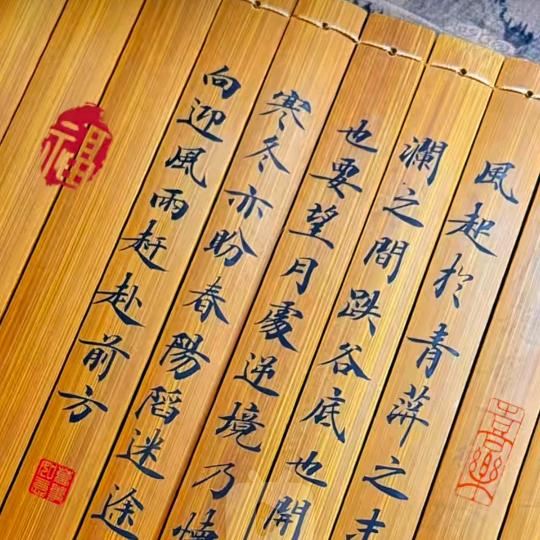 風起於青萍之
瀾之間跌谷底也開
也要望月憂逆境乃
寒冬亦盼春陽陷迷途
向迎風雨赶赴前方
福
喜樂